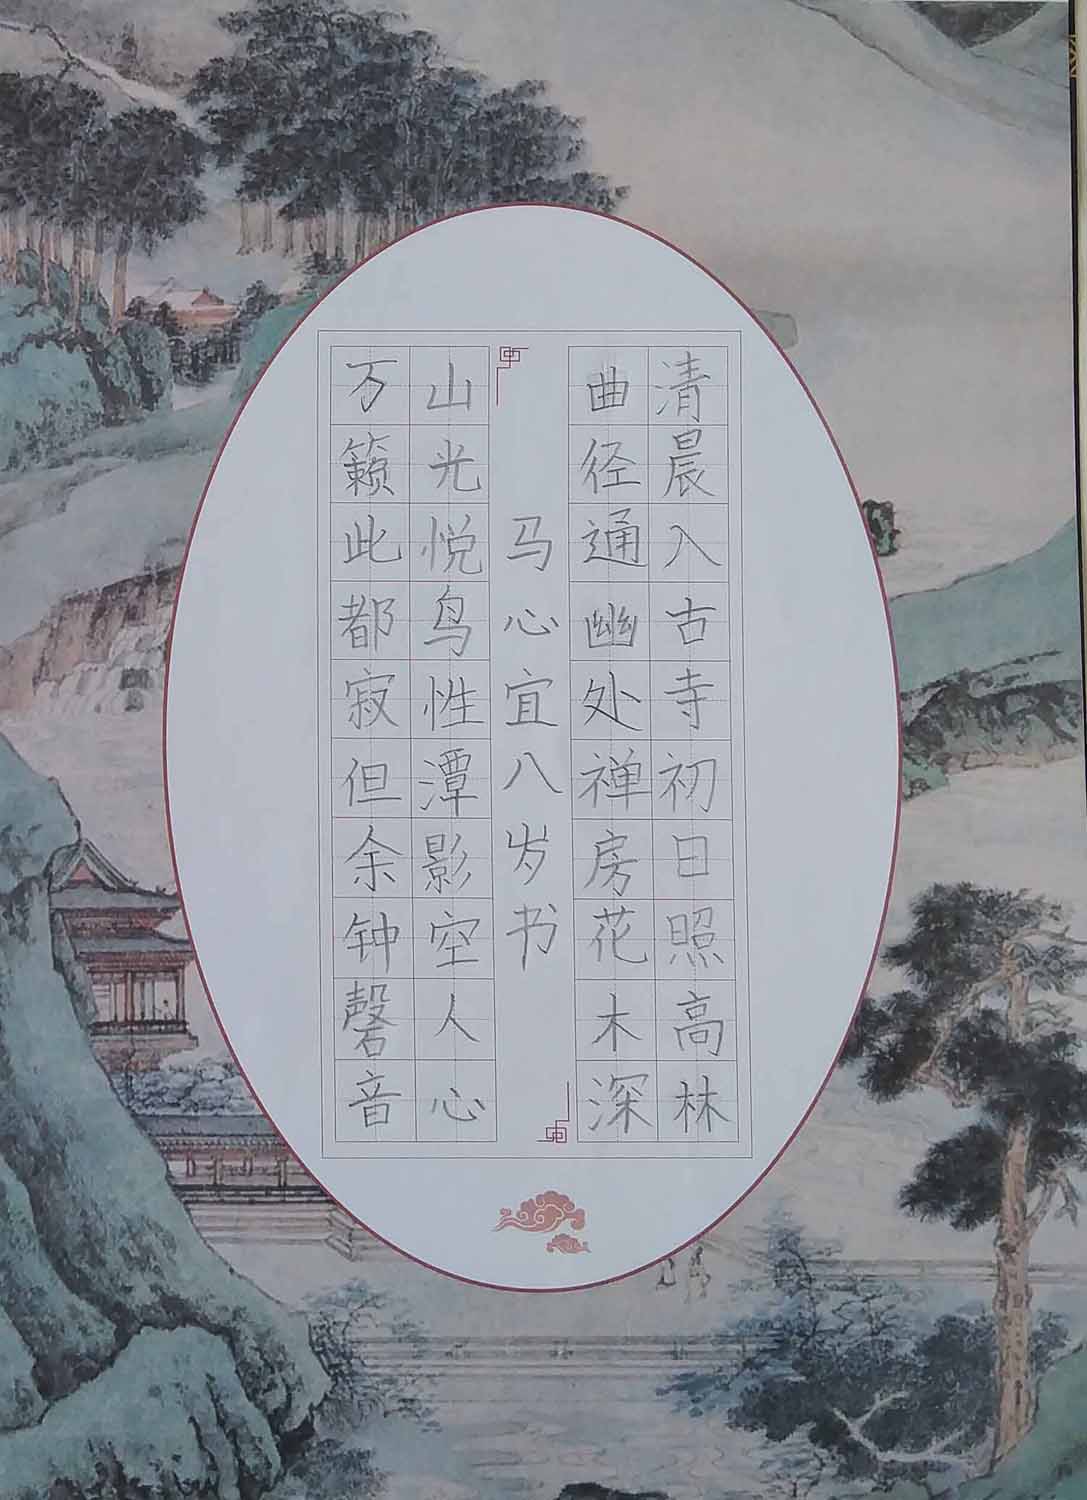 清晨入古寺初日照高林
曲径通幽处禅房花木深
马心宜八岁书
山光悦鸟性潭影空人心
万籁此都寂但余钟磬音